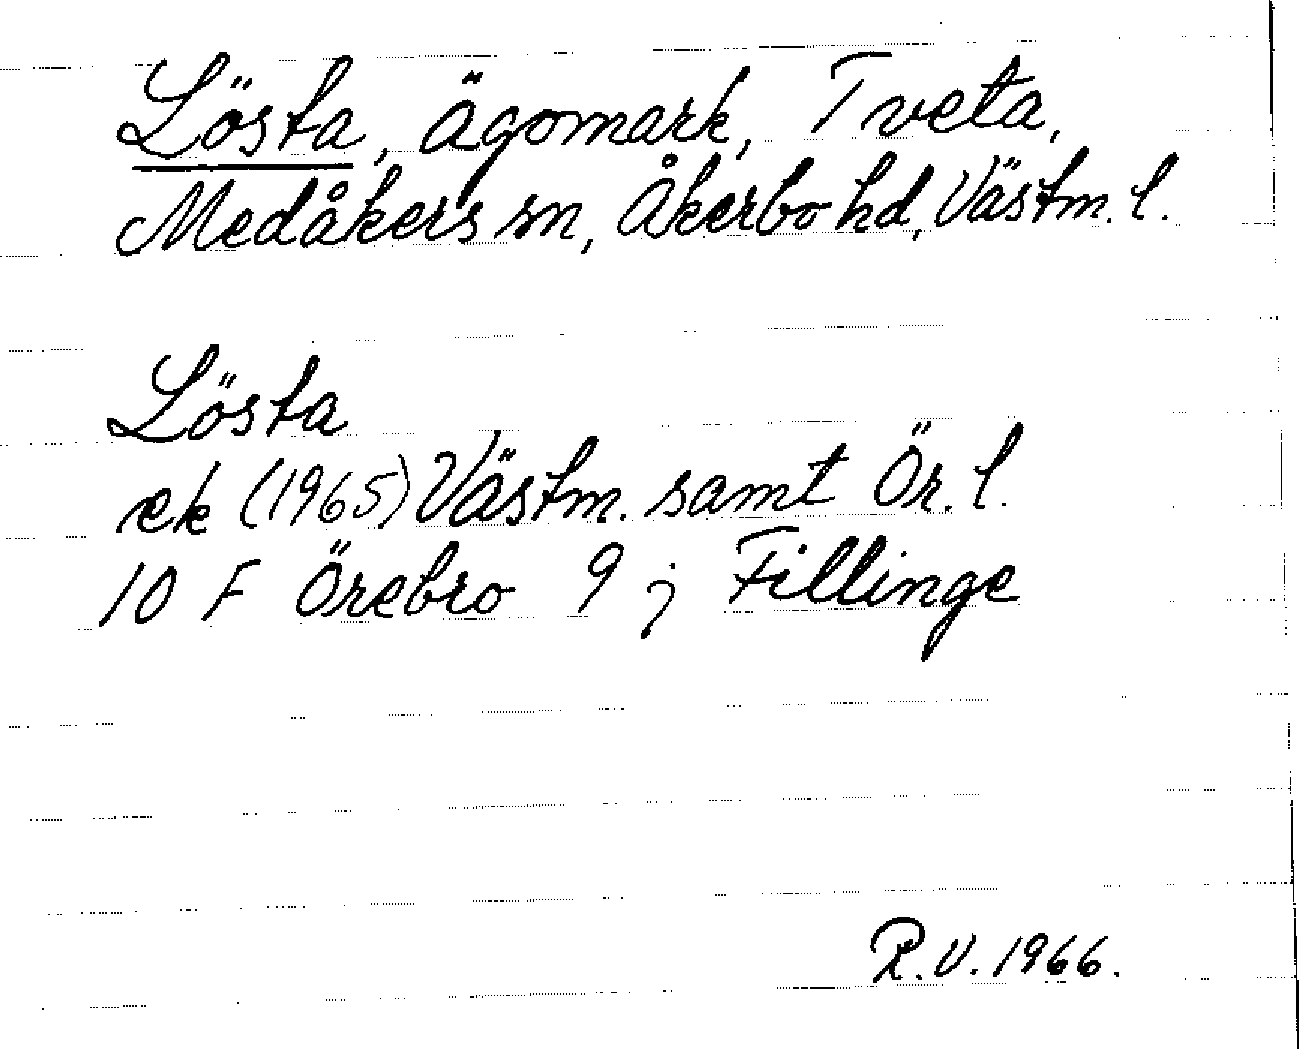 Lösta, ägomark, Tveta,
Medåkers sn, Åkerbo hd, Västm. l.
Lösta
ek (1965) Västm. samt Ör. l.
10 F Örebro 9 j Fillinge
R.V. 1966.